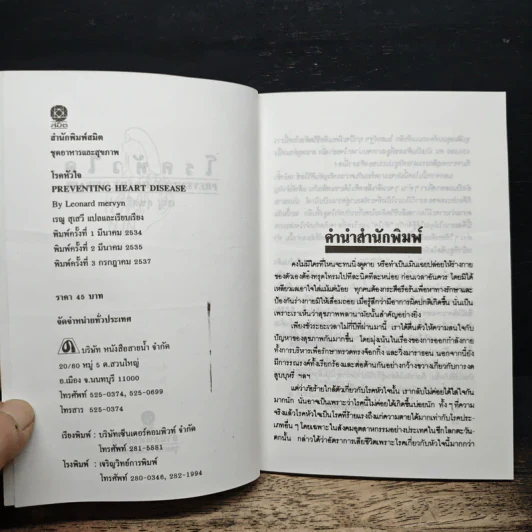 สมิต
สำนักพิมพ์สมิต
ชุดอาหารและสุขภาพ
โรคหัวใจ
PREVENTING HEART DISEASE
By Leonard mervyn
เรณู สุเสวี แปลและเรียบเรียง
พิมพ์ครั้งที่ 1 มีนาคม 2534
พิมพ์ครั้งที่ 2 มีนาคม 2535
พิมพ์ครั้งที่ 3 กรกฎาคม 2537
ราคา 45 บาท
จัดจำหน่ายทั่วประเทศ
บริษัท หนังสือสายน้ำ จำกัด
20/60 หมู่ 5 ต.สวนใหญ่
อ.เมือง จ.นนทบุรี 11000
โทรศัพท์ 525-0374, 525-0699
โทรสาร 525-0374
เรียงพิมพ์ : บริษัทเซ็นเตอร์คอมพิวท์ จำกัด
โทรศัพท์ 281-5581
โรงพิมพ์ : เจริญวิทย์การพิมพ์
โทรศัพท์ 280-0346, 282-1994
คำนำสำนักพิมพ์
คงไม่มีใครที่ไหนจะทนนิ่งดูดาย หรือทำเป็นเมินเฉยปล่อยให้ร่างกาย
ของตัวเองต้องทรุดโทรมไปทีละนิดทีละหน่อย ก่อนเวลาอันควร โดยมิได้
เหลียวแลเอาใจใส่แม้แต่น้อย ทุกคนต้องกระตือรือร้นเพื่อหาทางรักษาและ
ป้องกันร่างกายมิให้เสื่อมถอย เมื่อรู้สึกว่ามีอาการผิดปกติเกิดขึ้น นั่นเป็น
เพราะเราเห็นว่าสุขภาพพลานามัยนั้นสำคัญอย่างยิ่ง
เพียงชั่วระยะเวลาไม่กี่ปีที่ผ่านมานี้ เราได้ตื่นตัวให้ความสนใจกับ
ปัญหาของสุขภาพกันมากขึ้น โดยมุ่งเน้นในเรื่องของการออกกำลังกาย
ทั้งการบริหารเพื่อรักษาทรวดทรงหรือกิ๊ง และวิ่งมาราธอน นอกจากนี้ยัง
มีการรณรงค์ทั้งเรียกร้องและต่อต้านกันอย่างกว้างขวางเกี่ยวกับการงด
สูบบุหรี่ ฯลฯ
แต่ว่าภัยร้ายใกล้ตัวเกี่ยวกับโรคหัวใจนั้น เรากลับไม่ค่อยได้ใส่ใจกัน
มากนัก นั่นอาจเป็นเพราะว่าโรคนี้ไม่ค่อยได้เกิดขึ้นบ่อยนัก ทั้ง ๆ ที่ความ
จริงแล้วโรคหัวใจเป็นโรคที่ร้ายแรงถึงแก่ความตายได้มากเท่ากับโรคประ
เภทอื่น ๆ โดยเฉพาะในสังคมอุตสาหกรรมอย่างประเทศในซีกโลกตะวัน
ตกนั้น กล่าวได้ว่าอัตราการเสียชีวิตเพราะโรคเกี่ยวกับหัวใจนี้มากกว่า